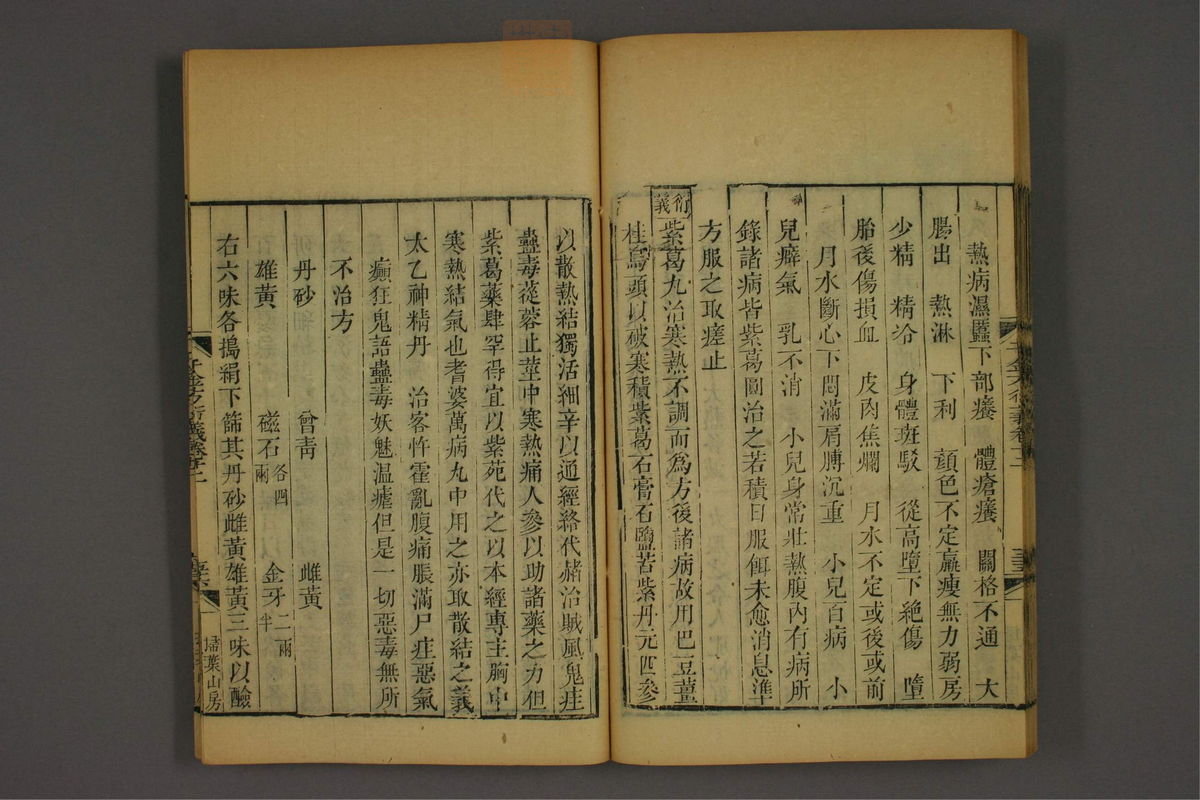 熱病濕䘌下部癢　體瘡癢　關格不通　大
腸出　熱淋　下利　顔色不定羸瘦無力弱房
少精　精冷　身體斑駁　從高墮下絶傷　墮
胎後傷損血　皮肉焦爛　月水不定或後或前
月水斷心下悶滿肩膊沉重　小兒百病　小
兒癖氣　乳不消　小兒身常壯熱腹內有病所
錄諸病皆紫葛圓治之若積日服餌未愈消息準
方服之取瘥止
衍義
紫葛丸治寒熱不調而爲方後諸病故用巴豆薑
桂烏頭以破寒積紫葛石膏石鹽苦紫丹元四參
以散熱結獨活細辛以通經絡代赭治賊風鬼疰
蠱毒蓯蓉止莖中寒熱痛人參以助諸藥之力但
紫葛藥肆罕得宜以紫苑代之以本經專主胸中
寒熱結氣也耆婆萬病丸中用之亦取散結之義
太乙神精丹　治客忤霍亂腹痛脹滿尸疰惡氣
癲狂鬼語蠱毒妖魅温瘧但是一切惡毒無所
不治方
丹砂　曾青　雌黃
雄黃　磁石各四兩　金牙二兩半
右六味各搗絹下篩其丹砂雌黃雄黃三味以醶
千金方衍義卷十二
掃葉山房